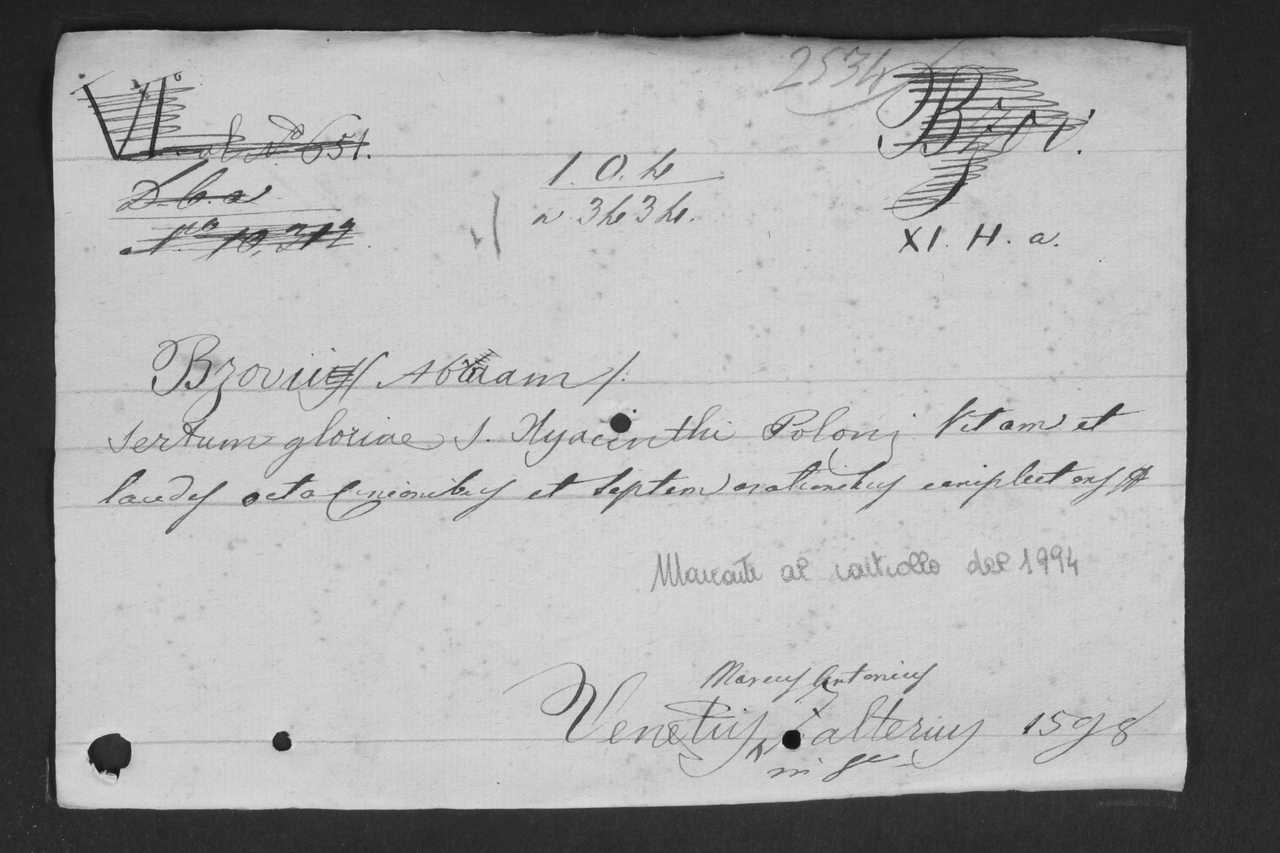 2534
Bzov.
al No 651.
No 10,312
1. O. 4
a 3434.
XI. H. a.
Bzovii Abraam /:
Sertum gloriae S. Hyacinthi Poloni Vitam et
laudes octo Cencionibus et septem orationibus complectens
Mancante al controllo del 1994
Marcus Antonius
Venetiis Zalterius 1598
in 4°